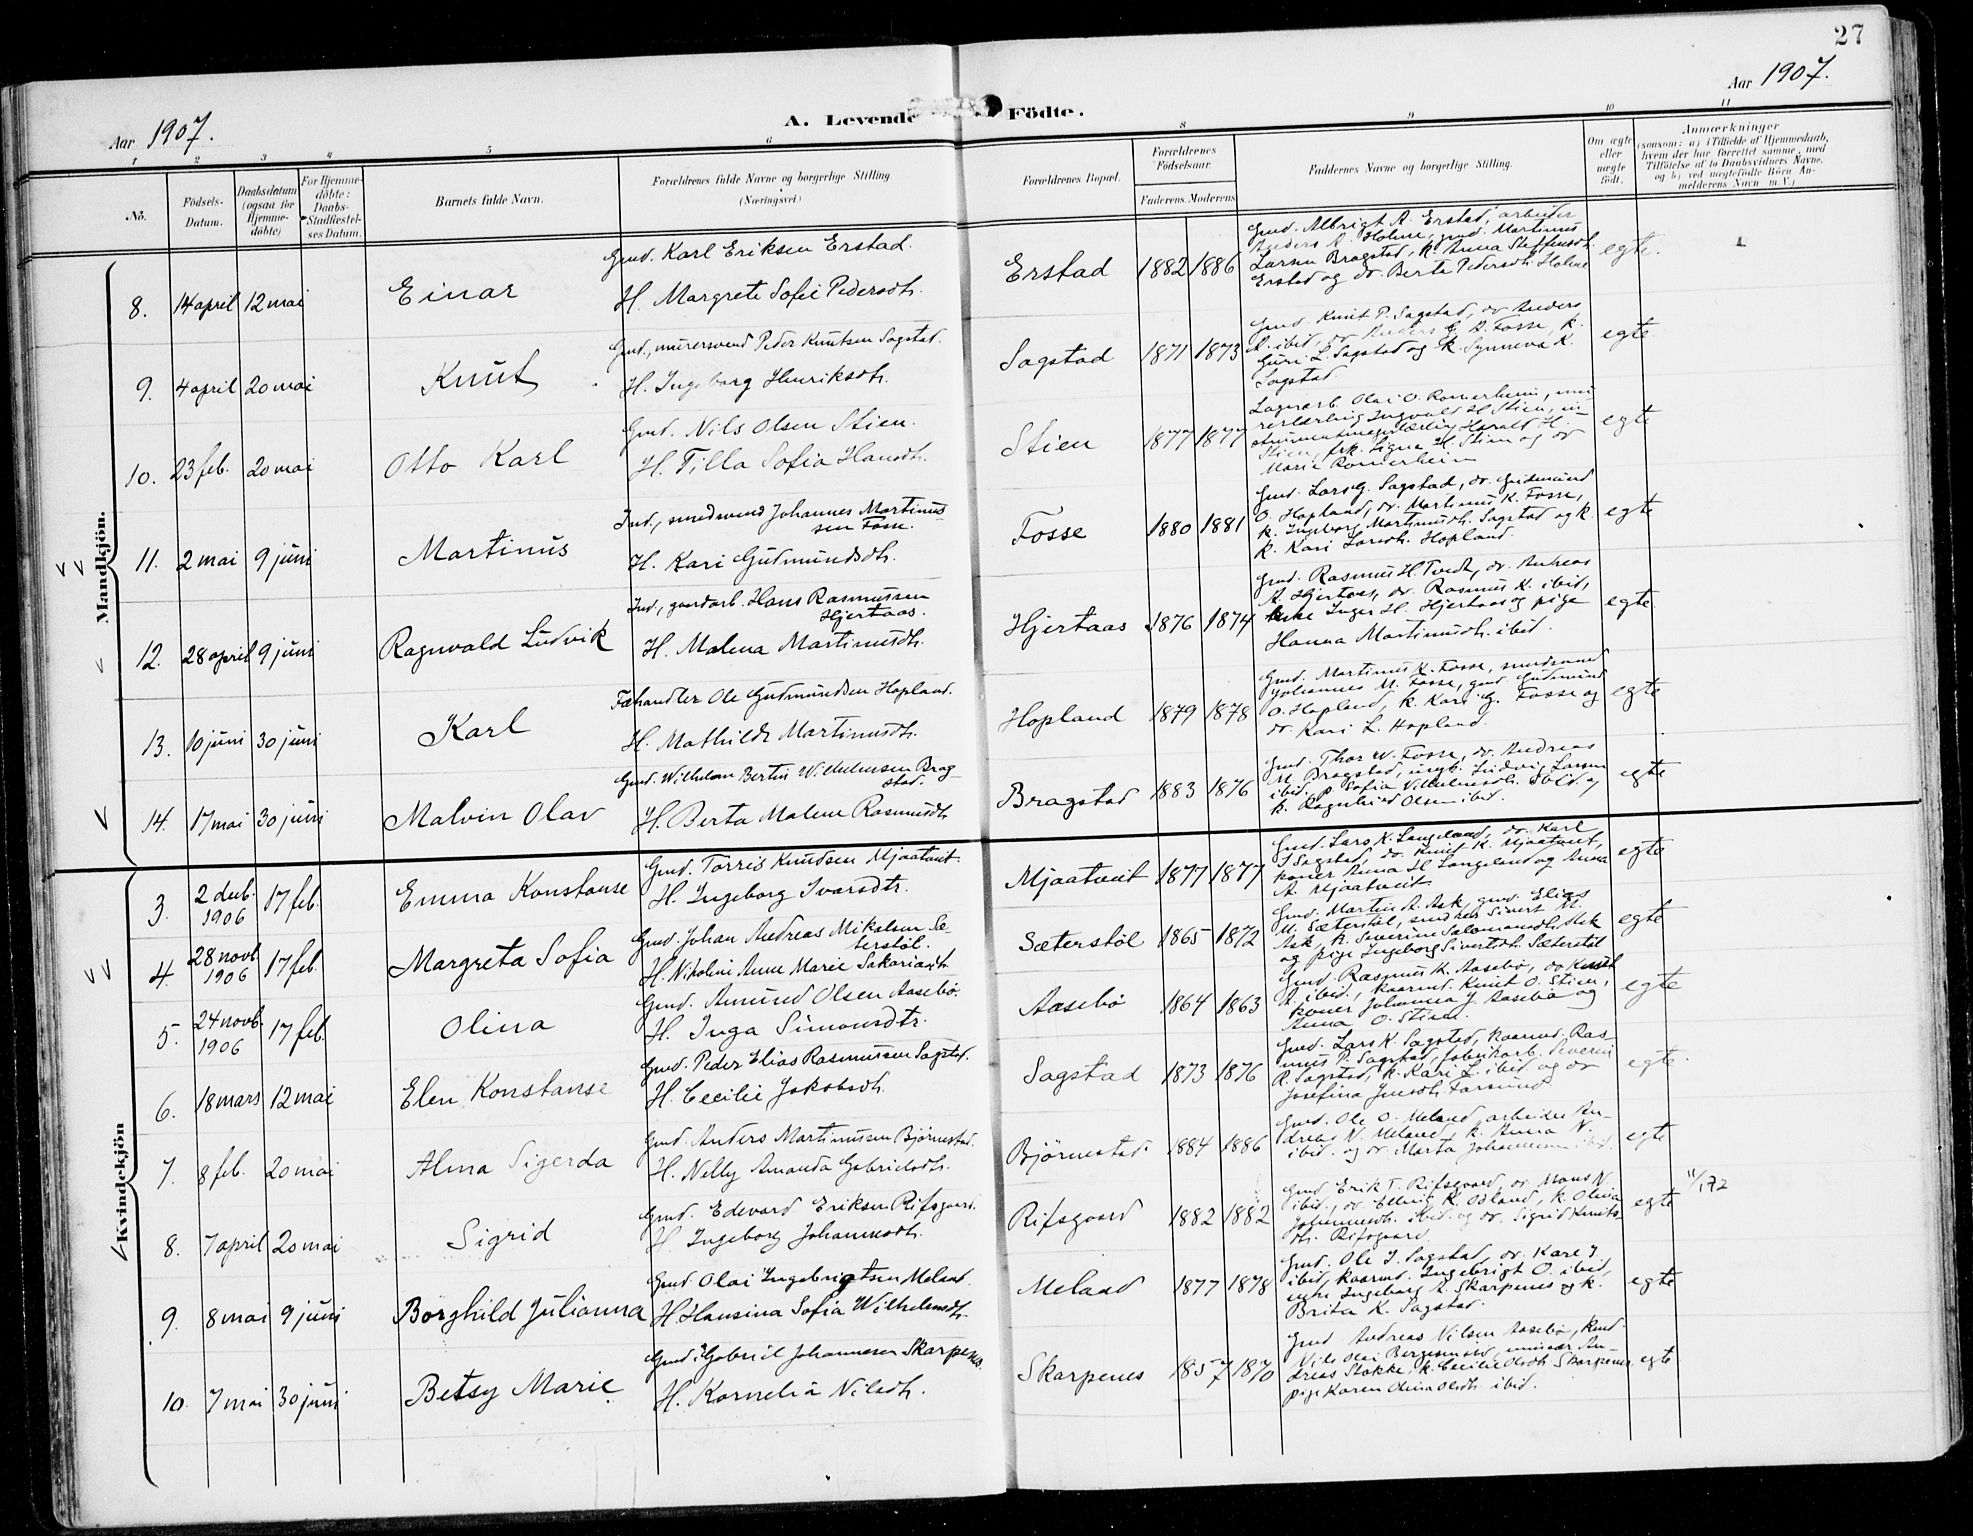 27
Aar 1907.
A. Levende Födte.
Aar 1907.
1 2 3 4 5 6 8 9 10 11
Nö.
Födsels-
Datum.
Daabsdatum
(ogsaa for
Hjemme-
döbte)
For Hjemme-
döbte:
Daabs-
Stadfæstel-
ses Datum.
Barnets fulde Navn.
Forældrenes fulde Navne og borgerlige Stilling
(Næringsvei)
Forældrenes Bopæl.
Forældrenes
Födselsaar.
Faderens. Moderens
Faddernes Navne og borgerlige Stilling.
Om ægte
eller
uægte
födt.
Anmærkninger
(saasom: a) i Tilfælde af Hjemmedaab,
hvem der har forrettet samme, med
Tilföielse af to Daabsvidners Navne.
og b) ved uægtefödte Börn An-
melderens Navn m. V.)
Mandkjön.
8. 14 april 12 mai Einar
Gmd. Karl Eriksen Erstad.
H. Margrete Sofie Pedersdtr.
Erstad 1882 1886
Gmd. Albrigt A. Erstad, arbeider
Anders A. Holme, gmd. Martinus
Larsen Bragstad, k. Anna Steffensdtr.
Erstad og dr. Berta Pedersdtr. Holme
egte.
9. 4 april 20 mai Knut
Gmd., murersvend Peder Knutsen Sagstad.
H. Ingeborg Henriksdtr.
Sagstad 1871 1873
Gmd. Knut P. Sagstad, dr Anders
A. ibid, dr Anders G. A. Fosse, k.
Guri L. Sagstad og k. Synneva K.
Sagstad
egte.
10. 23 feb. 20 mai Otto Karl
Gmd. Nils Olsen Stien.
H. Tilla Sofia Hansdtr.
Stien 1877 1877
Lagerarb. Olai O. Romerheim, mu
rerlærling Ingvald H Stien, in
strumentmagerlærling Harald H.
Stien, frk. Signa H. Stien og dr
Marie Romerheim
egte
11. 2 mai 9 juni Martinus
Ind., smedsvend Johannes Martinus-
sen Fosse.
H. Kari Gudmundsdtr.
Fosse 1880 1881
Gmd. Lars G. Sagstad, dr. Gudmund
O. Hopland, dr. Martinus K. Fosse,
k. Ingeborg Martinusdtr. Sagstad og k.
k. Kari Larsdtr. Hopland.
egte
12. 28 april 9 juni Ragnvald Ludvik
Ind., gaardarb. Hans Rasmussen
Hjertaas.
H. Malena Martinusdtr.
Hjertaas 1876 1874
Gmd. Rasmus H. Tvedt, dr. Andreas
A. Hjertaas, dr. Rasmus K. ibid,
enke Inger H. Hjertaas og pige
Hanna Martinusdtr. ibid.
egte
13. 10 juni 30 juni Karl
Fæhandler Ole Gudmundsen Hopland.
H. Mathilde Martinusdtr.
Hopland 1879 1878
Gmd. Martinus K. Fosse, smedsvend
Johannes M. Fosse, gmd Gudmund
O. Hopland, k. Kari G. Fosse og
dr. Kari L. Hopland.
egte
14. 17 mai 30 juni Malvin Olav
Gmd. Wilhelm Bertin Wilhelmsen Brag-
stad.
H. Berta Malene Rasmusdtr.
Bragstad 1883 1876
Gmd. Thor W. Fosse, dr. Andreas
M. Bragstad, ungk. Ludvig Larsen
ibid, p. Sofia Vilhelmsdtr. ibid. og
k. Ragnhild Olsen ibid.
egte
Kvindekjön
3. 2 decb. 1906 17 feb. Emma Konstanse
Gmd. Torris Knudsen Mjaatveit.
H. Ingeborg Ivarsdtr.
Mjaatveit 1877 1877
Gmd. Lars K. Langeland, dr. Karl
I Sagstad, dr. Knut K. Mjaatveit,
koner Anna H Langeland og Anna
A. Mjaatveit
egte
4. 28 novb. 1906 17 feb. Margreta Sofia
Gmd. Johan Andreas Mikalsen Sæ-
terstöl.
H. Nikoline Anne Marie Sakariasdtr.
Sæterstöl 1865 1872
Gmd. Martin A. Ask, gmd. Elias
M. Sæterstöl, smed Sivert M.
Ask, k. Severine Salomonsdtr. Ask
og pige Ingeborg Sivertsdtr. Sæterstöl
egte
5. 24 novb. 1906 17 feb. Olina
Gmd. Amund Olsen Aasebö.
H. Inga Simonsdtr.
Aasebö 1864 1863
Gmd. Rasmus K. Aasebö, dr Knut
A. ibid., kaarmd. Knut O. Stien,
koner Johanna J. Aasebö og
Anna O. Stien.
egte
6. 18 mars 12 mai Elen Konstanse
Gmd. Peder Elias Rasmussen Sagstad.
H. Cecilie Jakobsdtr.
Sagstad 1873 1876
Gmd. Lars K. Sagstad, kaarmd. Ras-
mus P. Sagstad, fabrikarb. Severin
R. Sagstad, k. Kari L. ibid og dr
Josefina Jensdtr. Farsund
egte.
7. 8 feb. 20 mai Alma Sigerda
Gmd. Anders Martinussen Björnestad.
H. Nelly Amanda Gabrielsdtr.
Björnestad. 1884 1886
Gmd. Ole O. Meland, arbeider An-
dreas N. Meland, k. Anna N.
ibid. og dr. Marta Johannessen ibid.
egte
8. 7 april 20 mai Sigrid
Gmd. Edevard Eriksen Rifsgaard.
H. Ingeborg Johannesdtr.
Rifsgaard 1882 1882
Gmd Erik T. Rifsgaard, dr. Mons N
ibid., dr. Elling K. Odland, k. Olina
Johannesdtr. ibid. og dr. Sigrid Knuts-
dtr. Rifsgaard.
egte 11/172
9. 8 mai 9 juni Borghild Julianna
Gmd Olai Ingebrigtsen Meland.
H. Hansina Sofia Wilhelmsdtr.
Meland 1877 1878
Gmd. Ole J. Sagstad, dr. Kare J.
ibid, kaarmd. Ingebrigt O. ibid,
enke Ingeborg A. Skarpenes og k.
Brita K. Sagstad.
egte
10. 7 mai 30 juni Betsy Marie
Gmd. Gabriel Johannesen Skarpenes.
H. Kornelia Nilsdtr.
Skarpenes 1857 1870
Gmd Andreas Nilsen Aasebö, kmd.
Nils Olai Bergesund, An-
dreas Stokke, k. Cecilie Olsdtr Skarpenes
pige Karen Olina Olsdtr. ibid.
egte